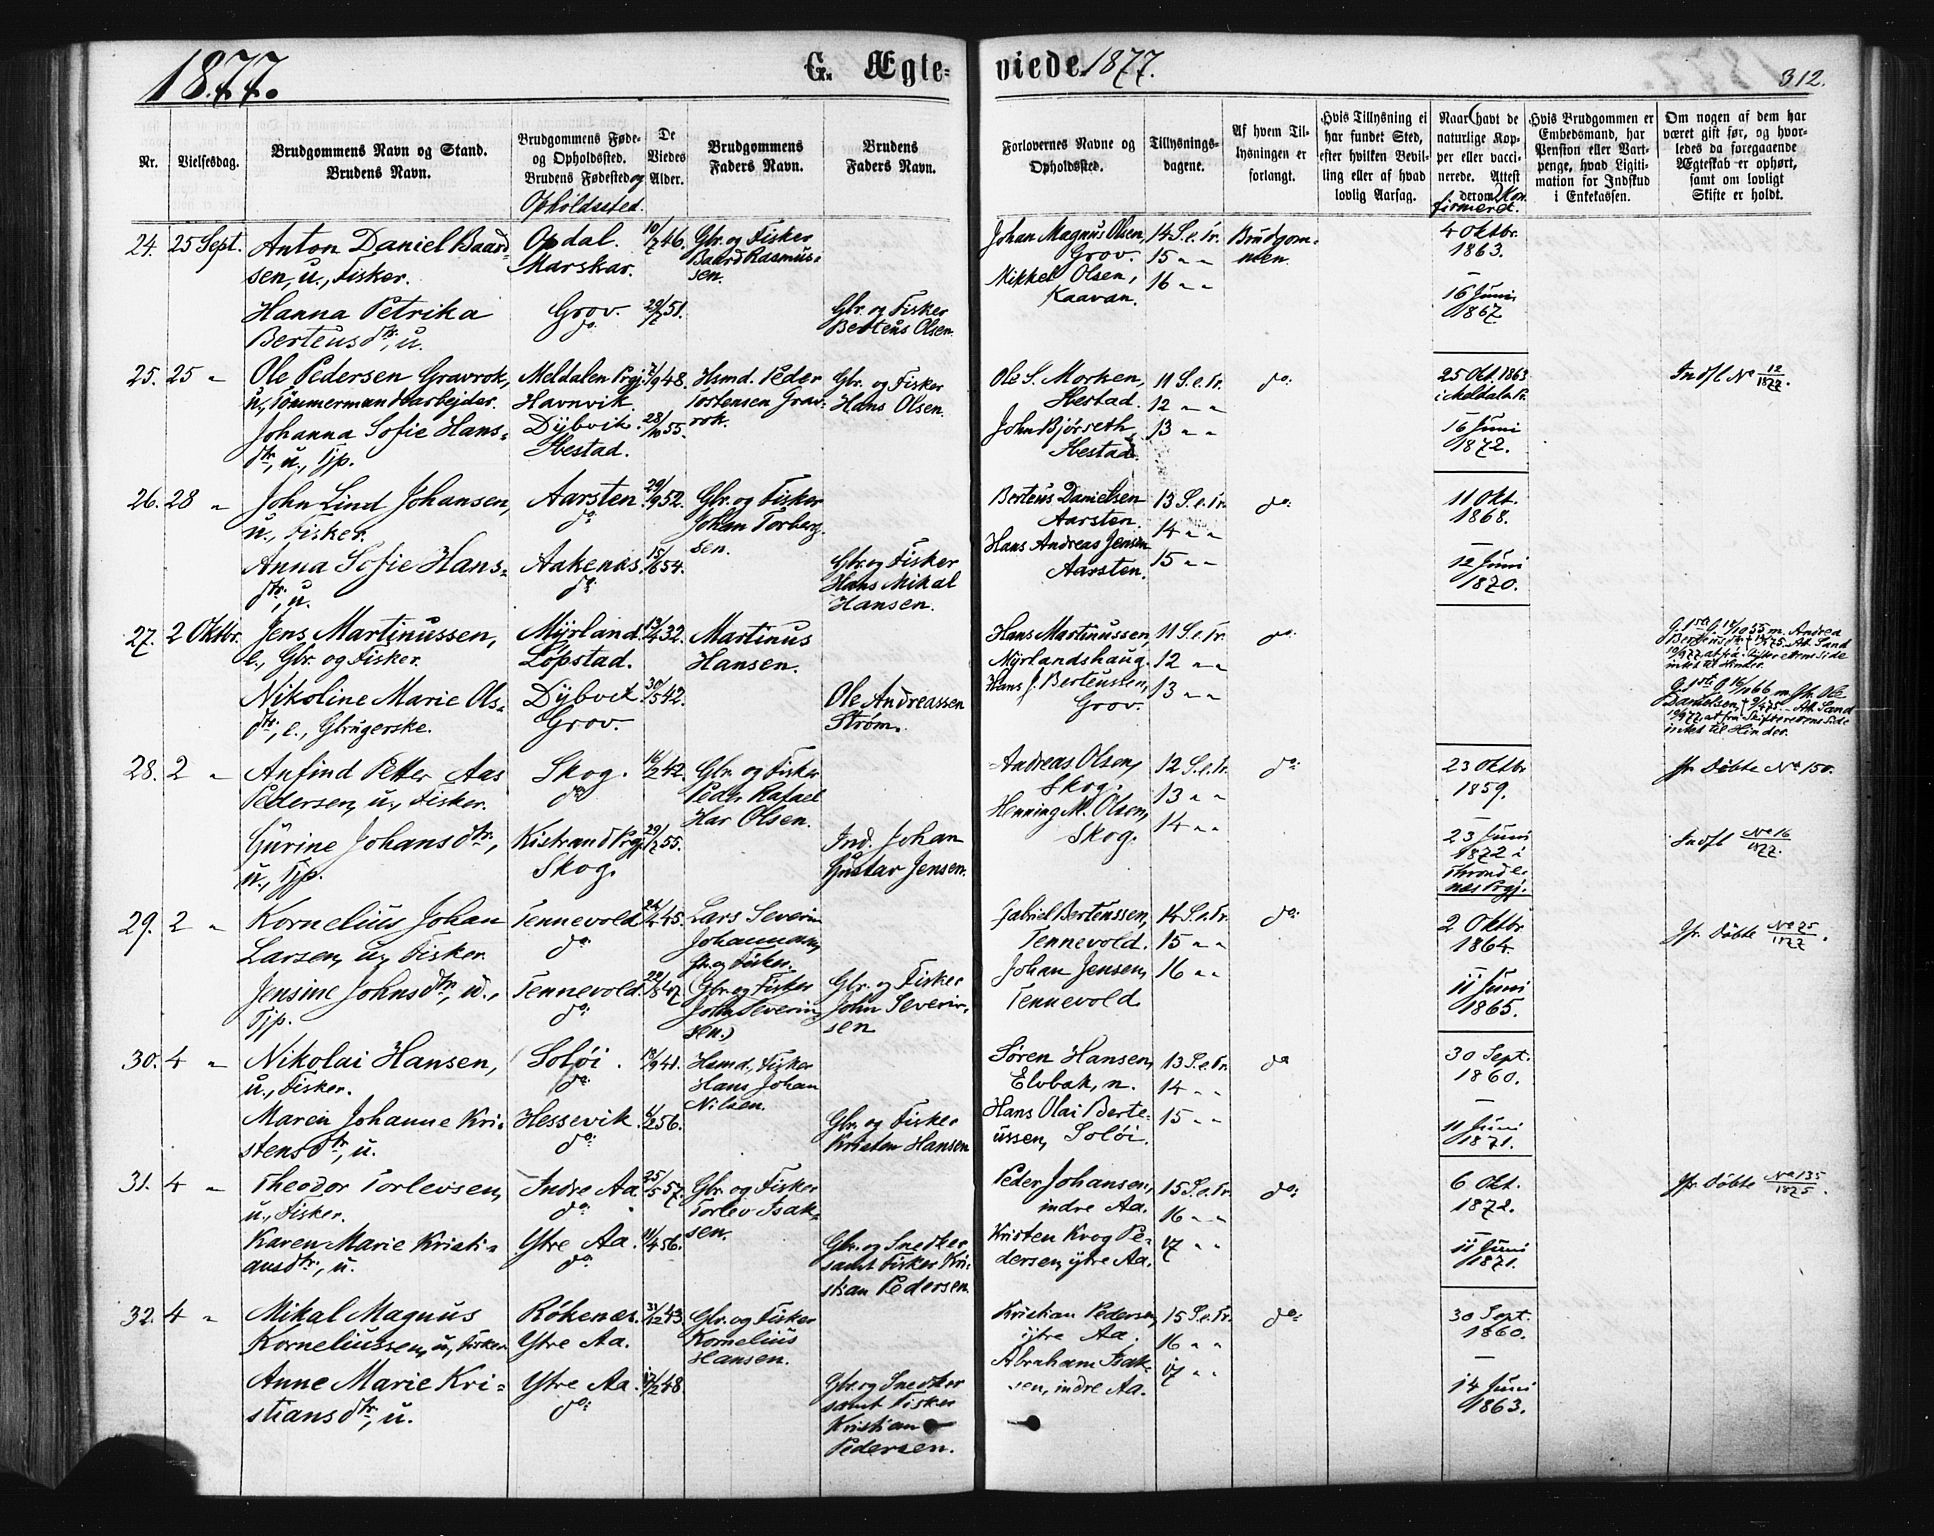 1877.
G. Ægte-
viede 1877.
312.
Nr.
Vielsesdag.
Brudgommens Navn og Stand.
Brudens Navn.
Brudgommens Føde-
og Opholdssted.
Brudens Fødested og
Opholdssted.
De
Viedes
Alder.
Brudgommens
Faders Navn.
Brudens
Faders Navn.
Forlovernes Navne og
Opholdssted.
Tillysnings-
dagene.
Af hvem Til-
lysningen er
forlangt.
Hvis Tillysning ei
har fundet Sted,
efter hvilken Bevil-
ling eller af hvad
lovlig Aarsag.
Naar (havt de
naturlige Kop-
per eller vacci-
nerede. Attest
derom) Kon
firmeret.
Hvis Brudgommen er
Embedsmand, har
Pension eller Vart-
penge, hvad Ligiti-
mation for Indskud
i Enkekassen.
Om nogen af dem har
været gift før, og hvor-
ledes da foregaaende
Ægteskab er ophørt,
samt om lovligt
Skifte er holdt.
24. 25 Sept.
Anton Daniel Baard
sen, u., Fisker.
Hanna Petrika
Berteusdtr, u.
Opdal.
Marskar.
Grov.
do
10/7 46.
29/7 51.
Gbr. og Fisker
Baard Rasmus-
sen.
Gbr. og Fisker
Berteus Olsen.
Johan Magnus Olsen,
Grov.
Mikkel Olsen,
Kaavan.
14 S. e. Tr.
15 " "
16 " "
Brudgom-
men.
4 Oktbr.
1863.
—
16 Juni
1867
25. 25 "
Ole Pedersen Gravrok,
u., Tømmermandsarbejder.
Johanna Sofie Hans-
dtr, u., Tjp.
Meldalen Prgj.
Havnvik.
Dybvik.
Ibestad.
7/9 48.
28/10 55.
Hsmd. Peder
Tortensen Grav-
rok.
Gbr. og Fisker
Hans Olsen.
Ole S. Morken,
Ibestad.
John Bjørseth,
Ibestad.
11 S. e. Tr.
12 " "
13 " "
do
25 Okt. 1863
i Meldalen
16 Juni
1872.
Indfl No 12/1877.
26. 28 "
John Lind Johansen,
u., Fisker.
Anna Sofie Hans-
dtr, u.
Aarsten.
do
Aakenes.
do
29/9 52.
15/6 54.
Gbr. og Fisker
Johan Torberg-
sen.
Gbr. og Fisker
Hans Mikal
Hansen.
Berteus Danielsen
Aarsten.
Hans Andreas Jensen
Aarsten.
13 S. e. Tr.
14 " "
15 " "
do
11 Okt.
1868.
—
12 Juni
1870.
27. 2 Oktbr.
Jens Martinussen,
e., Gbr. og Fisker.
Nikoline Marie Ols-
dtr, e., Gbrugerske.
Myrland.
Løpstad.
Dybvik
Grov.
13/4 32.
30/5 42.
Martinus
Hansen.
Ole Andreassen
Strøm.
Hans Martinussen,
Myrlandshaug.
Hans J. Berteussen,
Grov.
11 S. e. Tr.
12 " "
13 " "
do
28. 2 "
Anfind Petter Aas
Pedersen, u., Fisker.
Gurine Johansdtr,
u., Tjp.
Skog.
do
Kistrand Prgj.
Skog.
16/2 42.
29/7 55.
Gbr. og Fisker
Peder Rafael
Har Olsen.
Ind. Johan
Gustav Jensen.
Andreas Olsen,
Skog.
Henning M. Olsen,
Skog.
12 S. e. Tr.
13 " "
14 " "
do
23 Oktbr
1859.
—
23 Juni
1872 i
Throndenes Prgj.
Jfr. Døbte No 150.
Indfl No 16/1877.
29. 2 "
Kornelius Johan
Larsen, u., Fisker.
Jensine Johnsdtr, u.,
Tjp.
Tennevold
do
Tennevold.
do
24/4 45.
22/8 47.
Lars Severin
Johannesen,
Gbr. og Fisker.
Gbr. og Fisker
John Severin
sen.)
Gbr. og Fisker
John Severin-
sen
Gabriel Berteussen,
Tennevold.
Johan Jensen,
Tennevold.
14 S. e. Tr.
15 " "
16 " "
do
2 Oktbr
1864.
11 Juni
1865.
Jfr. Døbte No 75/1877.
30. 4 "
Nikolai Hansen,
u., Fisker.
Maren Johanne Kri-
stensdtr, u.
Soløi.
do
Hessevik.
do
18/9 41.
Hsmd., Fisker
Hans Johan
Nilsen.
Gbr. og Fisker
Kristen Hansen
Søren Hansen,
Elvbak, n.
Hans Olai Berte-
ussen, Soløi.
13 S. e. Tr.
14 " "
15 " "
do
30 Sept.
1860.
—
11 Juni
1871.
31. 4 "
Theodor Torlevsen,
u., Fisker.
Karen Marie Kristi-
ansdtr, u.
Indre Aa.
do
Ytre Aa.
do
25/5 57.
11/4 56.
Gbr. og Fisker
Torlev Isak-
sen.
Gbr. og Snedker
samt Fisker Kri-
stian Pedersen.
Peder Johansen,
indre Aa.
Kristen Krog Pe-
dersen, ytre Aa.
15 S. e. Tr.
16 " "
17 " "
do
6 Okt.
1872.
—
11 Juni
1871.
Jfr. Døbte No 135/1875.
32. 4 "
Mikal Magnus
Korneliussen, u., Fisker
Anne Marie Kri-
stiansdtr, u.
Røkenes.
Ytre Aa.
Ytre Aa.
do
31/12 43.
17/2 48.
Gbr. og Fisker
Kornelius
Hansen.
Gbr. og Snedker
samt Fisker
Kristian
Pedersen.
Kristian Pedersen
ytre Aa.
Abraham Isak-
sen, indre Aa.
15 S. e. Tr.
16 " "
17 " "
do
30 Sept.
1860.
—
14 Juni
1863.